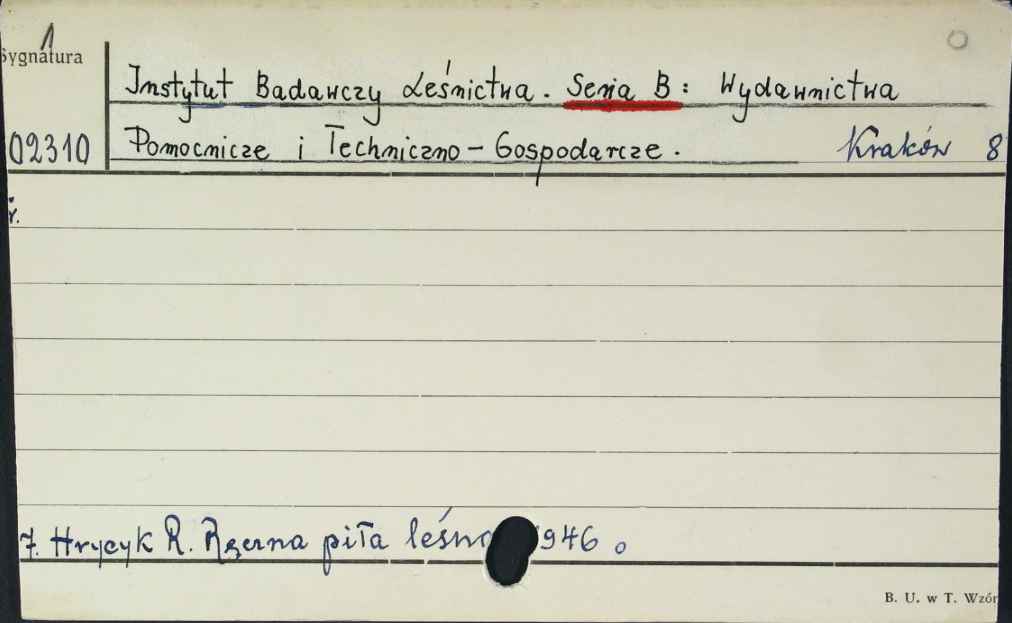 1
Sygnatura
Instytut Badawczy Leśnictwa. Seria B: Wydawnictwa
02310 Pomocnicze i Techniczno-Gospodarcze. Kraków 8
r.
7. Hrycyk R. Ręczna piła leśna 1946 o
B. U. w T. Wzór